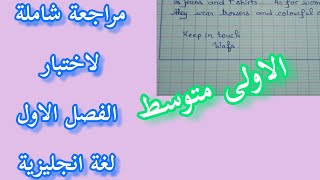 مراجعة شاملة
لاختبار
الفصل الاول
لغة انجليزية
الاولى متوسط
in jeans and t-shirts. As for women
they wear trousers and colourful
Keep in touch
Wafa